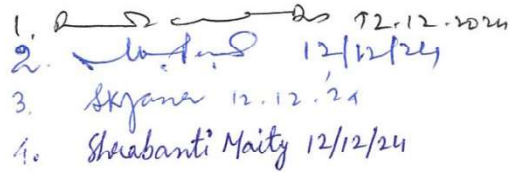 1. 12.12.2024
2. 12/12/24
3. SKJana 12.12.24
4. Shrabanti Maity 12/12/24